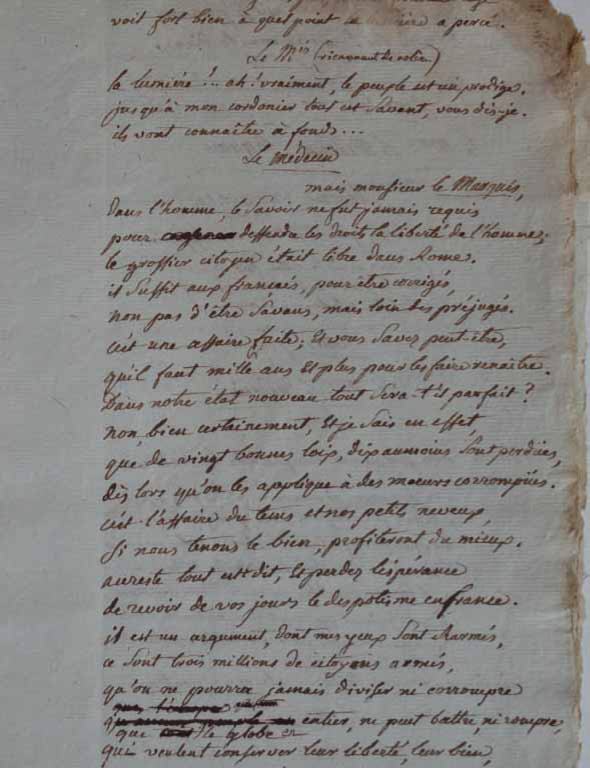 voit fort bien à quel point la lumière a percé.
Le M.is (ricannant de colère)
la lumière !... ah ! vraiment, le peuple est un prodige.
jusqu'à mon cordonier tout est savant, vous dis-je.
ils vont connaître à fonds...
Le médecin
mais monsieur le Marquis,
Dans l'homme, le savoir ne fut jamais requis
pour deffendre les droits la liberté de l'homme;
le grossier citoyen était libre dans Rome.
il suffit aux français, pour être corrigés,
non pas d'être savans, mais loin des préjugés.
c'est une affaire faite; et vous savez peut-être,
qu'il faut mille ans et plus pour les faire renaître.
Dans notre état nouveau tout sera-t'il parfait ?
non bien certainement, et je sais en effet,
que de vingt bonnes loix, dix aumoins sont perdües,
dès lors qu'on les applique à des moeurs corrompües.
c'est l'affaire du tems et nos petits neveux,
si nous tenons le bien, profiteront du mieux.
aureste tout est dit, et perdez l'espérance
de revoir de vos jours le despotisme en france.
il est un argument, dont mes yeux sont charmés,
ce sont trois millions de citoyens armés,
qu'on ne pourra jamais diviser ni corrompre
que le globe entier, ne peut battre, ni rompre,
qui veulent conserver leur liberté, leur bien,